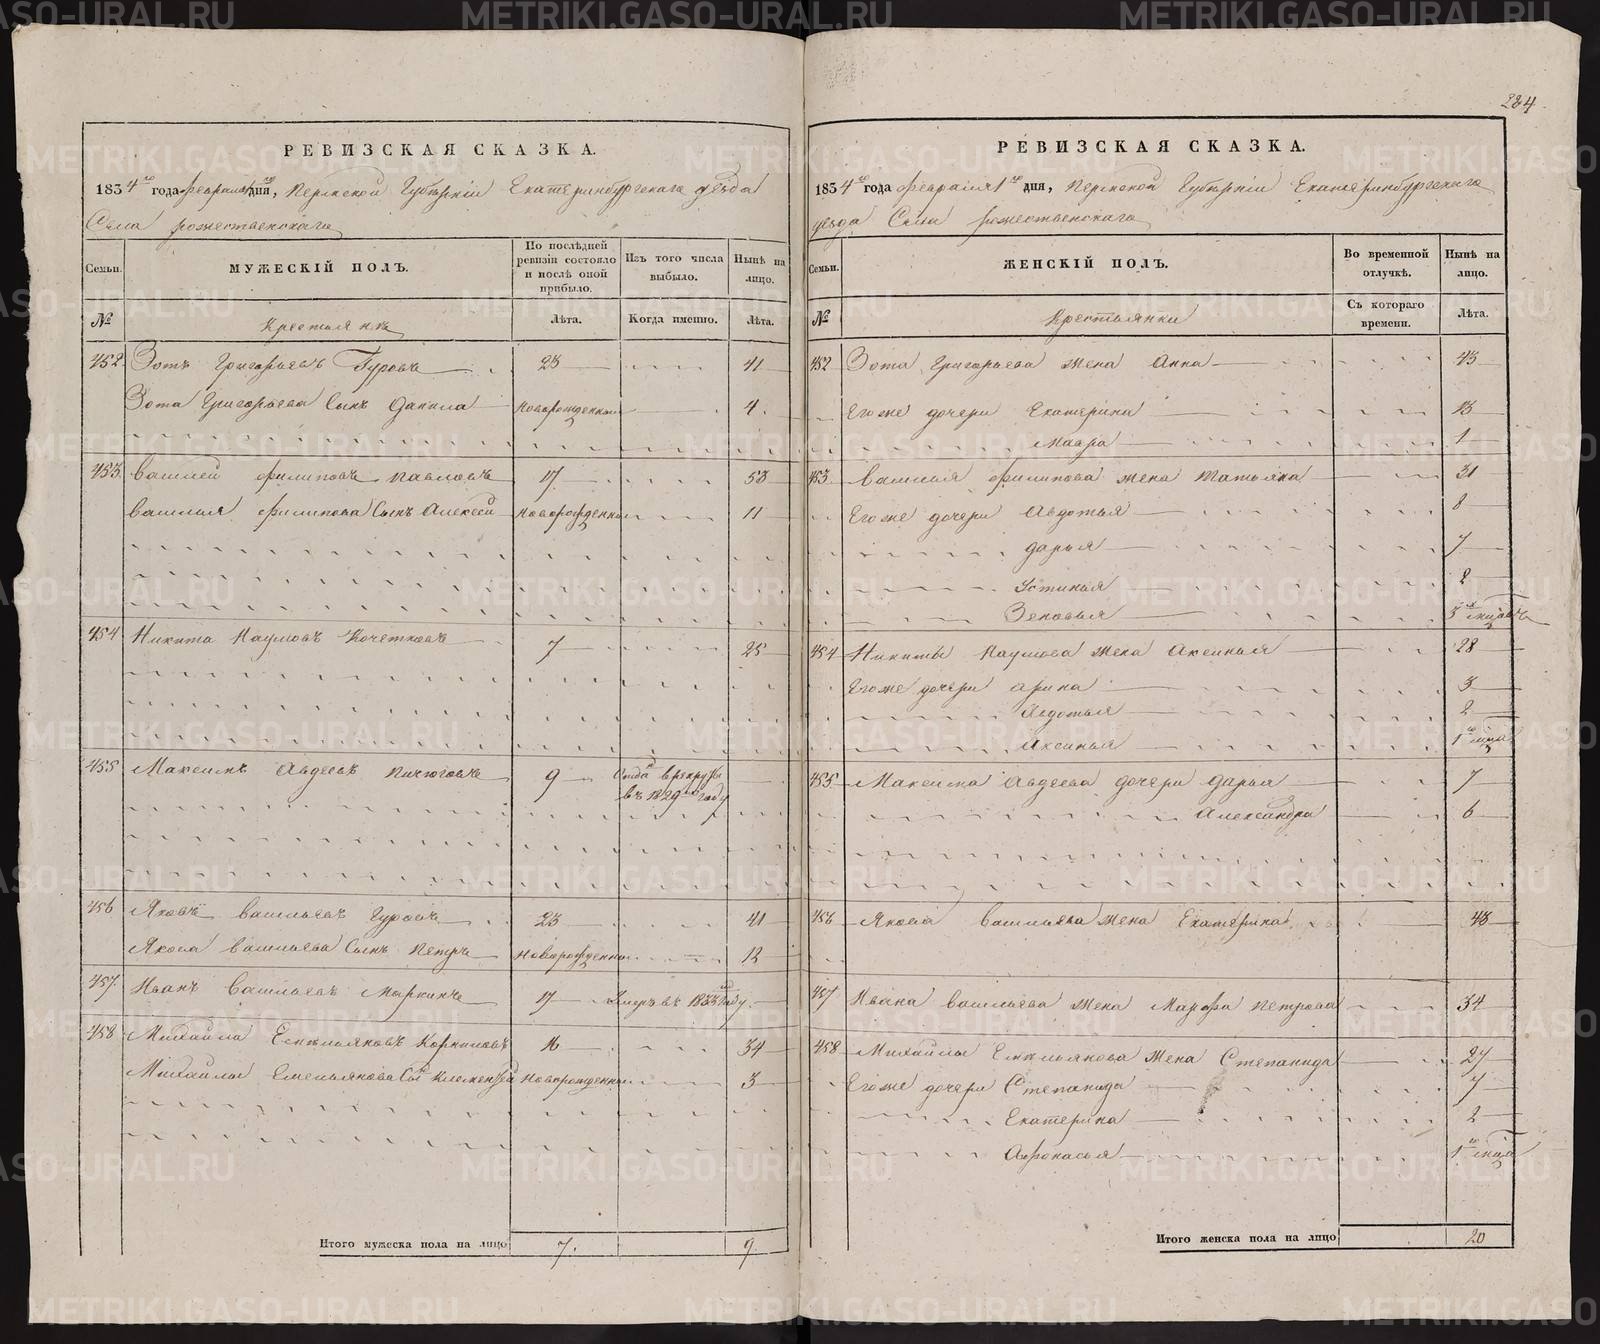 284
РЕВИЗСКАЯ СКАЗКА.
1834го года февраля 1го дня, Пермской Губернiи Екатеринбургскаго уезда
Села рожественскаго
Семьи.
МУЖЕСКIЙ ПОЛЪ.
По послѣдней ревизiи состояло и послѣ оной прибыло.
Изъ того числа выбыло.
Нынѣ на лицо.
№
Крестьянъ
Лѣта.
Когда именно.
Лѣта.
452 Зотъ Григорьевъ Гуровъ 23 41
Зота Григорьева Сынъ Данила новорожденной 4.
453 Василей Филиповъ Павловъ 17 53
Василья Филипова Сынъ Алексей новорожденной 11
454 Никита Наумовъ Кочетковъ 7 25
455 Максимъ Авдеевъ Пичюговъ 9 Отдан в рекруты
въ 1829мъ году
456 Яковъ Васильевъ Гуровъ 23 41
Якова Васильева Сынъ Петръ новорожденной 12
457 Иванъ Васильевъ Мыркинъ 17 Умеръ въ 1833 году.
458 Михайла Емельяновъ Корниловъ 16 34
Михайлы Емельянова Сын Клементей новорожденной 3
Итого мужеска пола на лицо 7. 9
РЕВИЗСКАЯ СКАЗКА.
1834го года февраля 1го дня, Пермской Губернiи Екатеринбургскаго
уезда Села рожественскаго
Семьи.
ЖЕНСКIЙ ПОЛЪ.
Во временной отлучкѣ.
Нынѣ на лицо.
№
Крестьянки
Съ котораго времени.
Лѣта.
452 Зота Григорьева жена Анна 43
Егоже дочери Екатерина 13
Мавра 1
453 Василья Филипова жена Татьяна 31
Егоже дочери Авдотья 8
Дарья 7
Устинья 2
Зеновья 5 месяцовъ
454 Никиты Наумова жена Аксинья 28
Егоже дочери Арина 3
Федотья 2
Аксинья 1го месяца
455 Максима Авдеева дочери Дарья 7
Александра 6
456 Якова Васильева жена Екатерина 43
457 Ивана Васильева жена Марфа Петрова 34
458 Михайлы Емельянова жена Степанида 27
Егоже дочери Степанида 7
Екатерина 2
Афонасья 1го месяца
Итого женска пола на лицо 20
METRIKI.GASO-URAL.RU